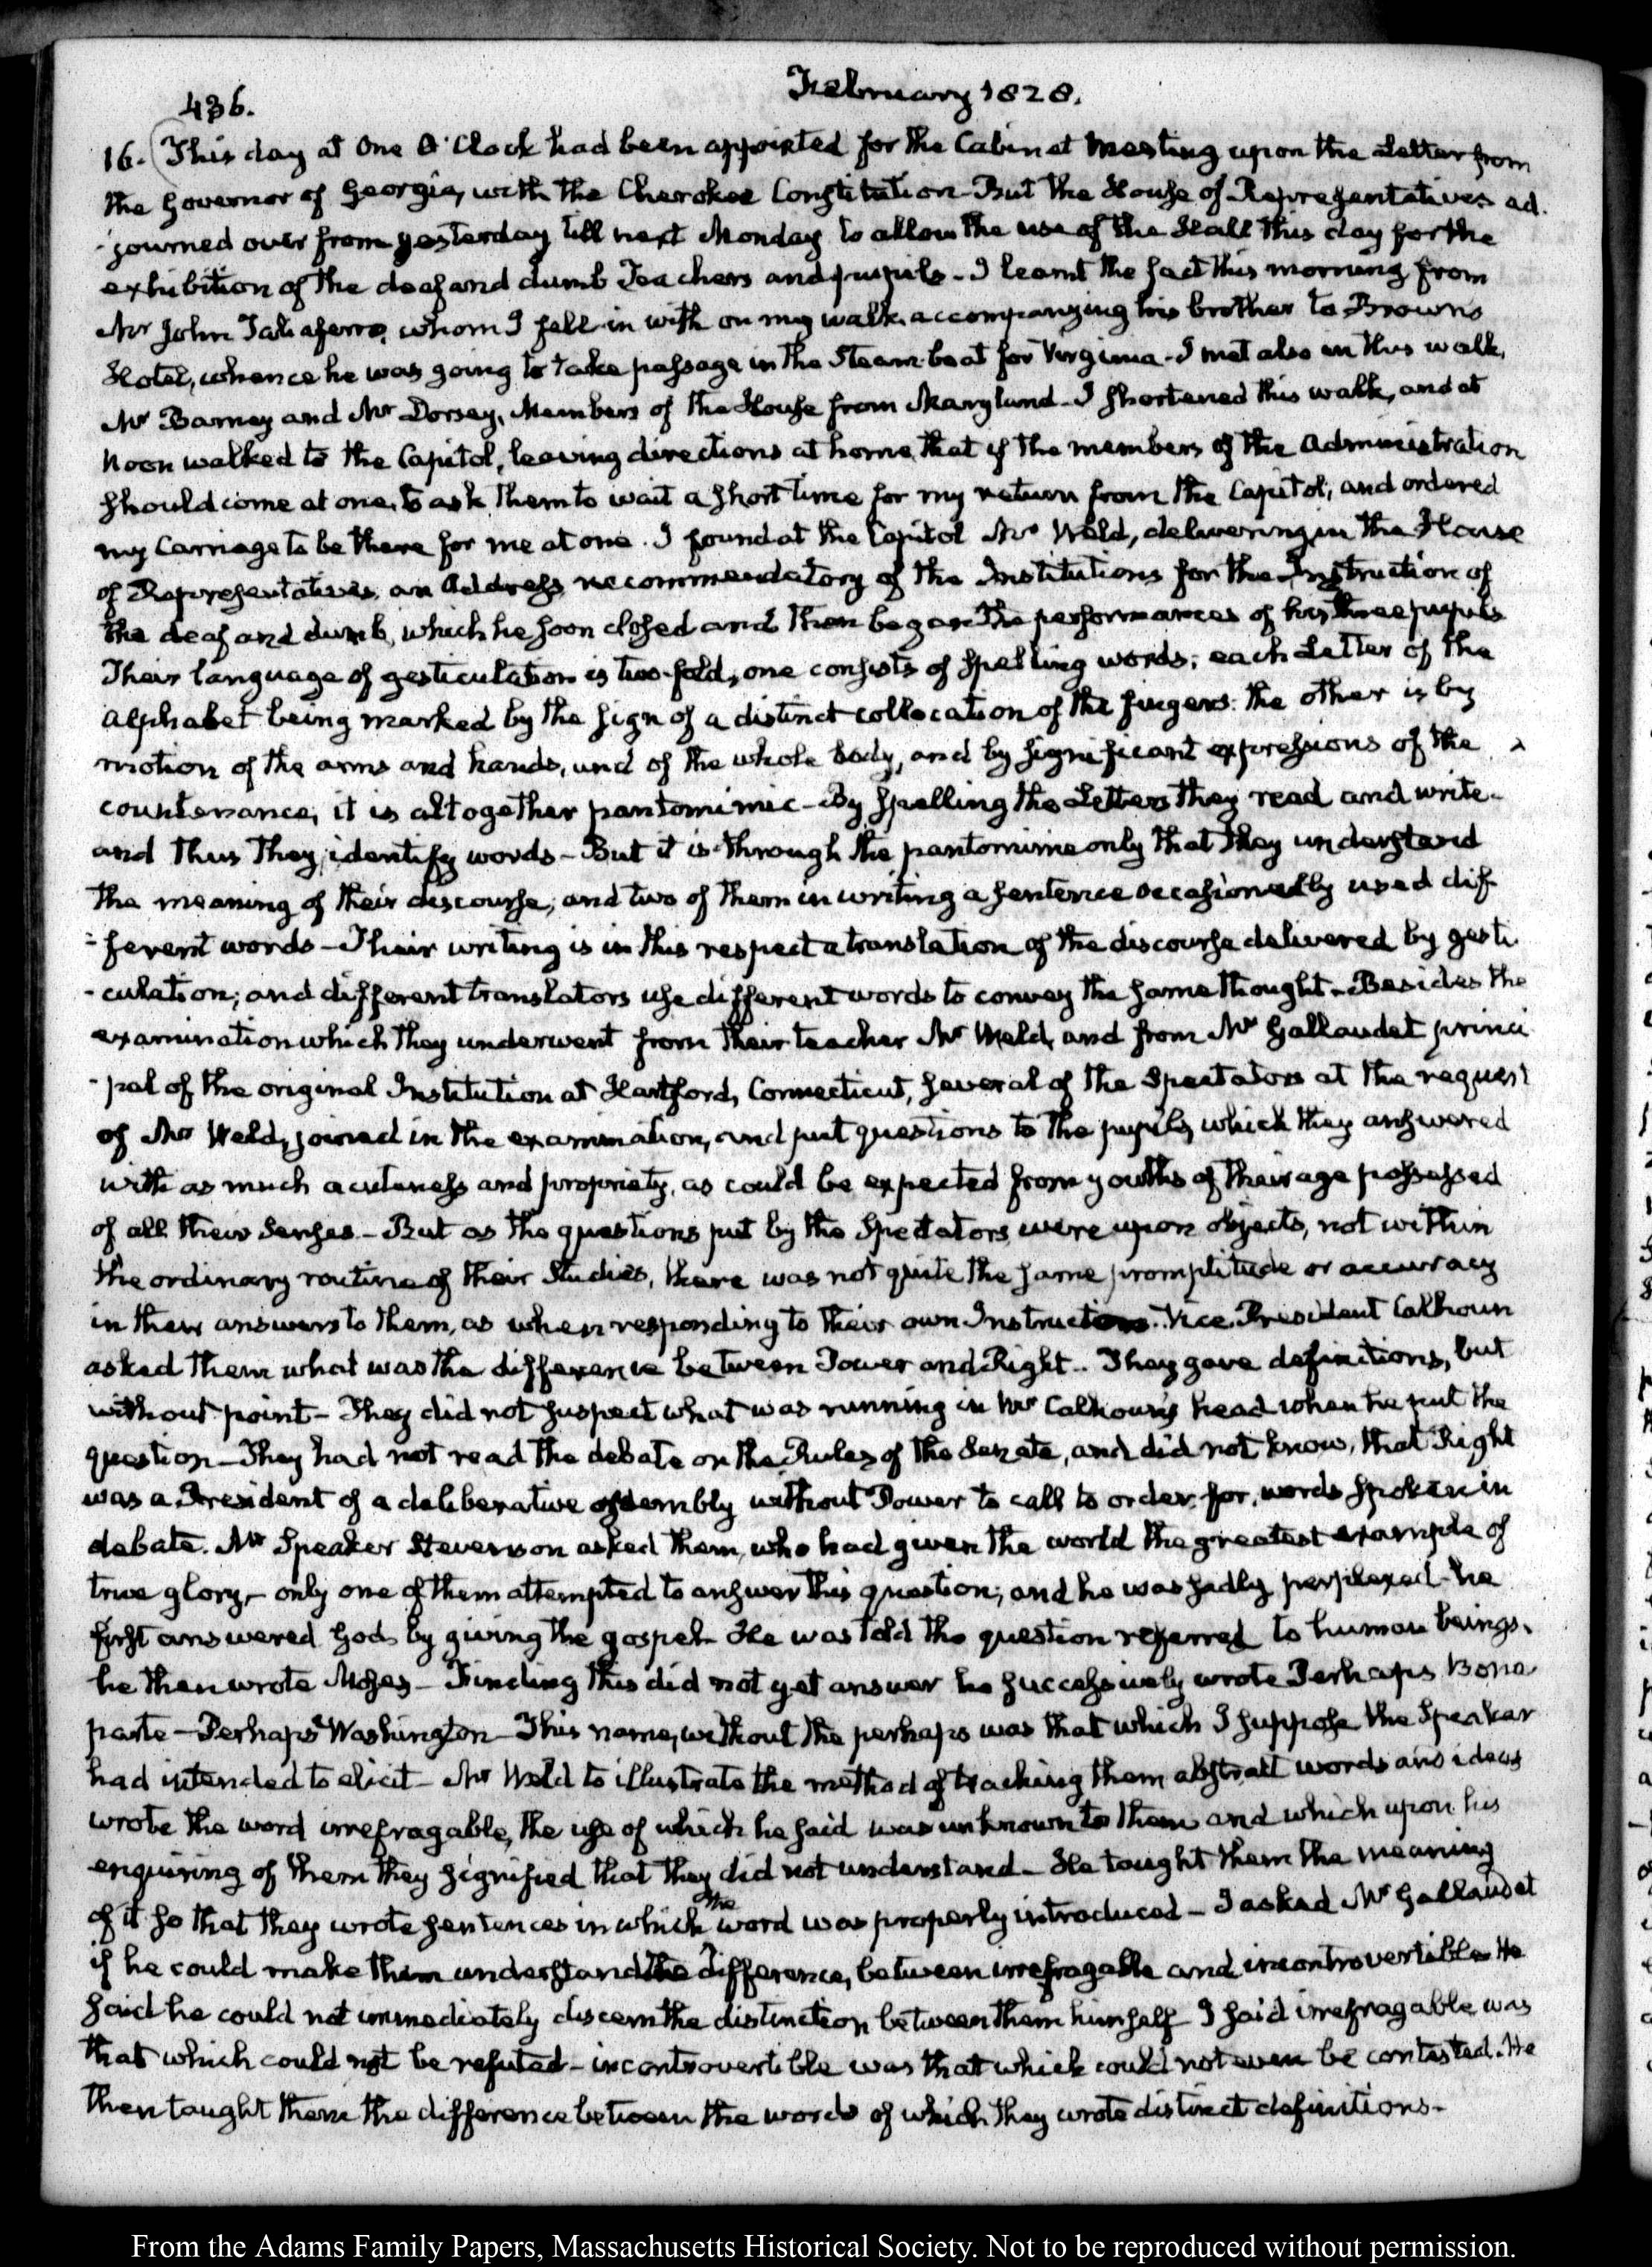 436.
February 1828.
16. This day at One O'Clock had been appointed for the Cabinet Meeting upon the Letter from
the Governor of Georgia, with the Cherokee Constitution - But the House of Representatives ad-
-journed over from yesterday till next Monday to allow the use of the Hall this day for the
exhibition of the deaf and dumb Teachers and pupils - I learnt the fact this morning from
Mr John Taliaferro, whom I fell in with on my walk, accompanying his brother to Browns
Hotel, whence he was going to take passage in the Steam-boat for Virginia - I met also in this walk,
Mr Barney and Mr Dorsey, Members of the House from Maryland - I shortened this walk, and at
Noon walked to the Capitol, leaving directions at home, that if the members of the Administration
should come at one, to ask them to wait a short time for my return from the Capitol, and ordered
my Carriage to be there for me at one. I found at the Capitol Mr Weld, delivering in the House
of Representatives, an Address recommendatory of the Institutions for the Instruction of
the deaf and dumb, which he soon closed and then began the performances of his three pupils
Their language of gesticulation is two-fold, one consists of spelling words; each Letter of the
alphabet being marked by the sign of a distinct collocation of the fingers: the other is by
motion of the arms and hands, and of the whole body, and by significant expressions of the
countenance, it is altogether pantomimic - By spelling the Letters they read and write -
and thus they identify words - But it is through the pantomime only that they understand
the meaning of their discourse, and two of them in writing a sentence occasionally used dif-
-ferent words - Their writing is in this respect a translation of the discourse delivered by gesti-
-culation; and different translators use different words to convey the same thought - Besides the
examination which they underwent from their teacher Mr Weld, and from Mr Gallaudet princi-
-pal of the original Institution at Hartford, Connecticut, several of the Spectators at the request
of Mr Weld, joined in the examination, and put questions to the pupils, which they answered
with as much acuteness and propriety, as could be expected from youths of their age possessed
of all their senses - But as the questions put by the Spectators were upon objects, not within
the ordinary routine of their Studies, there was not quite the same promptitude or accuracy
in their answers to them, as when responding to their own Instructors. Vice-President Calhoun
asked them what was the difference between Power and Right. They gave definitions, but
without point - They did not suspect what was running in Mr Calhoun's head when he put the
question - They had not read the debate on the Rules of the Senate, and did not know, that Right
was a President of a deliberative assembly without Power to call to order, for words spoken in
debate. Mr Speaker Stevenson asked them, who had given the world the greatest example of
true glory, - only one of them attempted to answer this question; and he was sadly perplexed - he
first answered God, by giving the gospel - He was told the question referred to human beings.
he then wrote Moses - Finding this did not yet answer he successively wrote Perhaps Bona-
parte - Perhaps Washington - This name, without the perhaps was that which I suppose the Speaker
had intended to elicit - Mr Weld to illustrate the method of teaching them abstract words and ideas
wrote the word irrefragable, the use of which he said was unknown to them and which upon his
enquiring of them they signified that they did not understand - He taught them the meaning
of it so that they wrote sentences in which the word was properly introduced - I asked Mr Gallaudet
if he could make them understand the difference, between irrefragable and incontrovertible. He
said he could not immediately discern the distinction between them himself - I said irrefragable was
that which could not be refuted - incontrovertible was that which could not even be contested. He
then taught them the difference between the words of which they wrote distinct definitions -
From the Adams Family Papers, Massachusetts Historical Society. Not to be reproduced without permission.